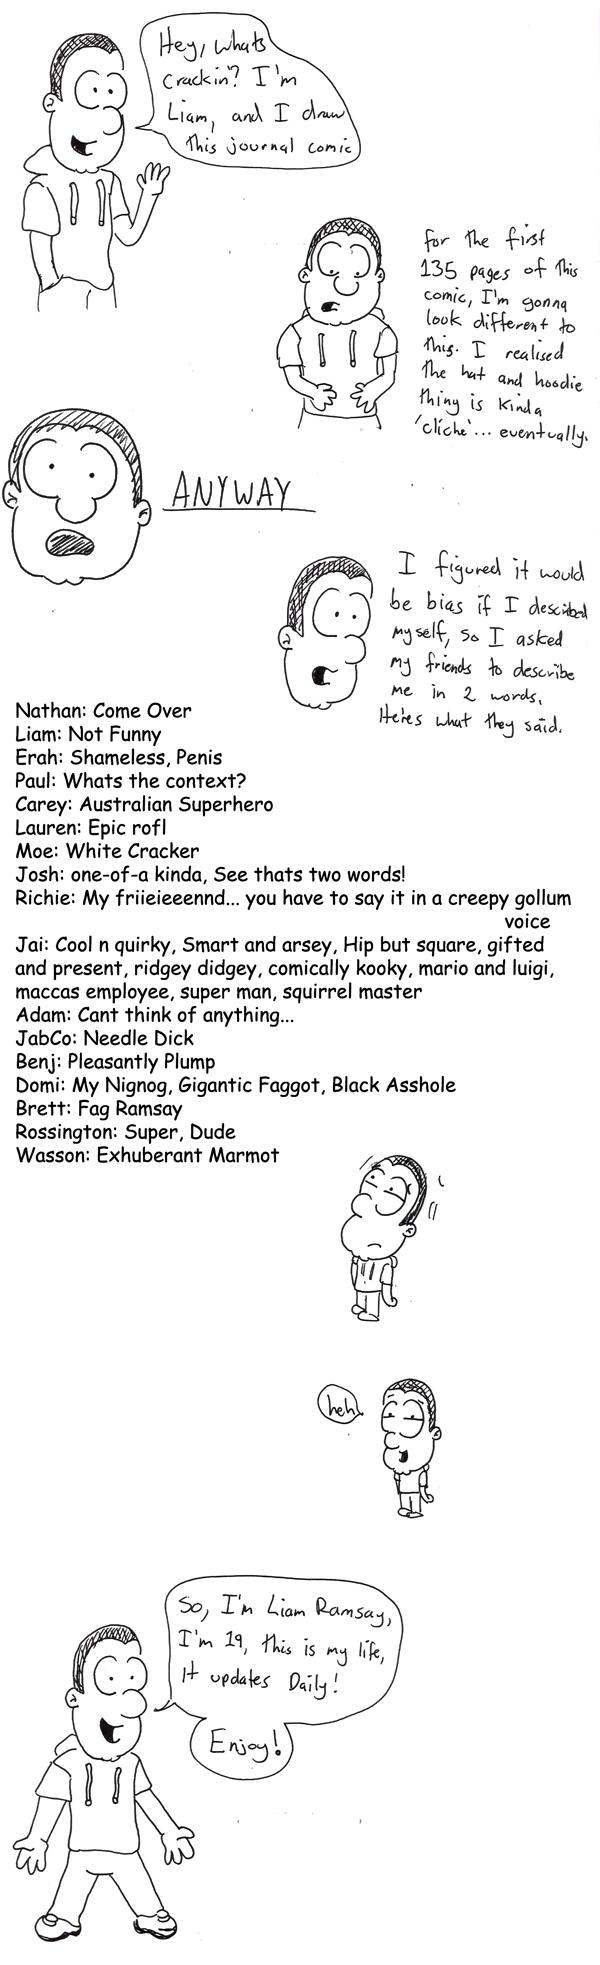 Hey, whats
crackin'? I'm
Liam, and I draw
this journal comic
for the first
135 pages of this
comic, I'm gonna
look different to
this. I realised
the hat and hoodie
thing is kinda
'cliche'... eventually.
ANYWAY
I figured it would
be bias if I described
myself, so I asked
my friends to describe
me in 2 words.
Heres what they said.
Nathan: Come Over
Liam: Not Funny
Erah: Shameless, Penis
Paul: Whats the context?
Carey: Australian Superhero
Lauren: Epic rofl
Moe: White Cracker
Josh: one-of-a kinda, See thats two words!
Richie: My friieieeennd... you have to say it in a creepy gollum
voice
Jai: Cool n quirky, Smart and arsey, Hip but square, gifted
and present, ridgey didgey, comically kooky, mario and luigi,
maccas employee, super man, squirrel master
Adam: Cant think of anything...
JabCo: Needle Dick
Benj: Pleasantly Plump
Domi: My Nignog, Gigantic Faggot, Black Asshole
Brett: Fag Ramsay
Rossington: Super, Dude
Wasson: Exhuberant Marmot
heh
So, I'm Liam Ramsay,
I'm 19, this is my life,
It updates Daily!
Enjoy!